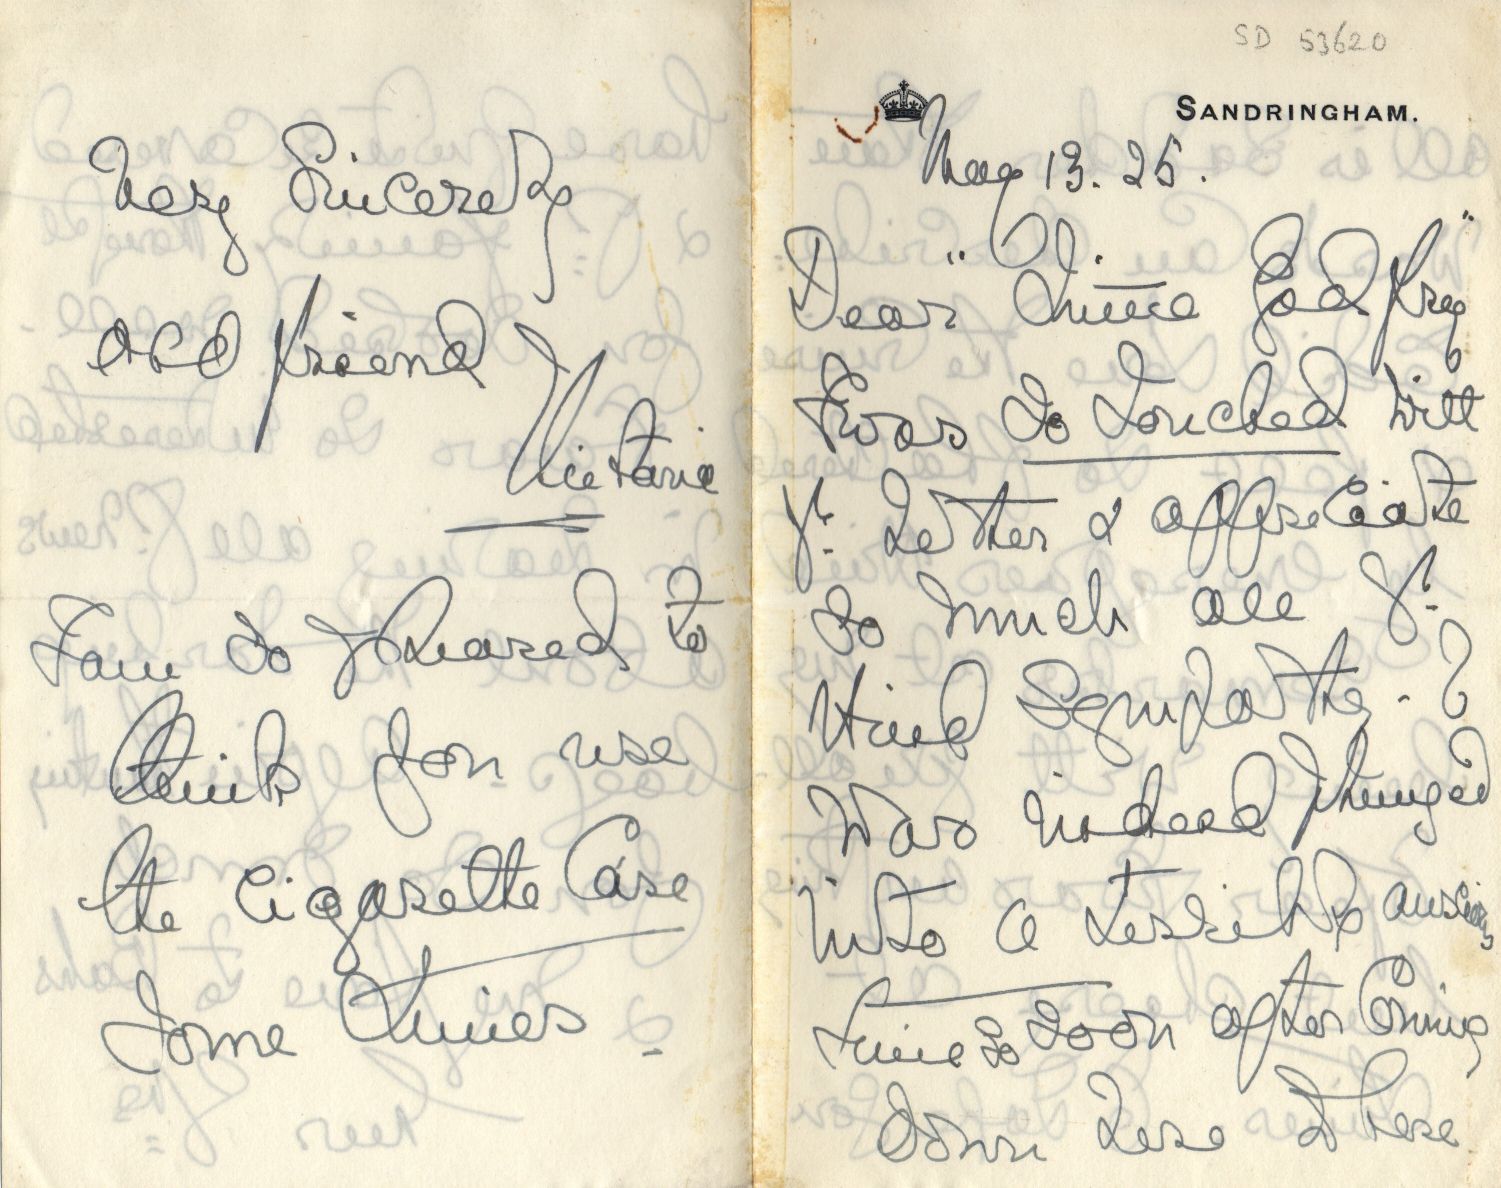 SD 53620
SANDRINGHAM.
May 13. 25.
Dear "Time Godfrey"
I was so touched with
yr. letter & appreciate
so much all yr.
kind sympathy. - I
was indeed plunged
into a terribly anxious
time so soon after coming
down here & these
Very Sincerely
old friend
Victoria
I am so pleased to
think you use
the Cigarette Case
some times -